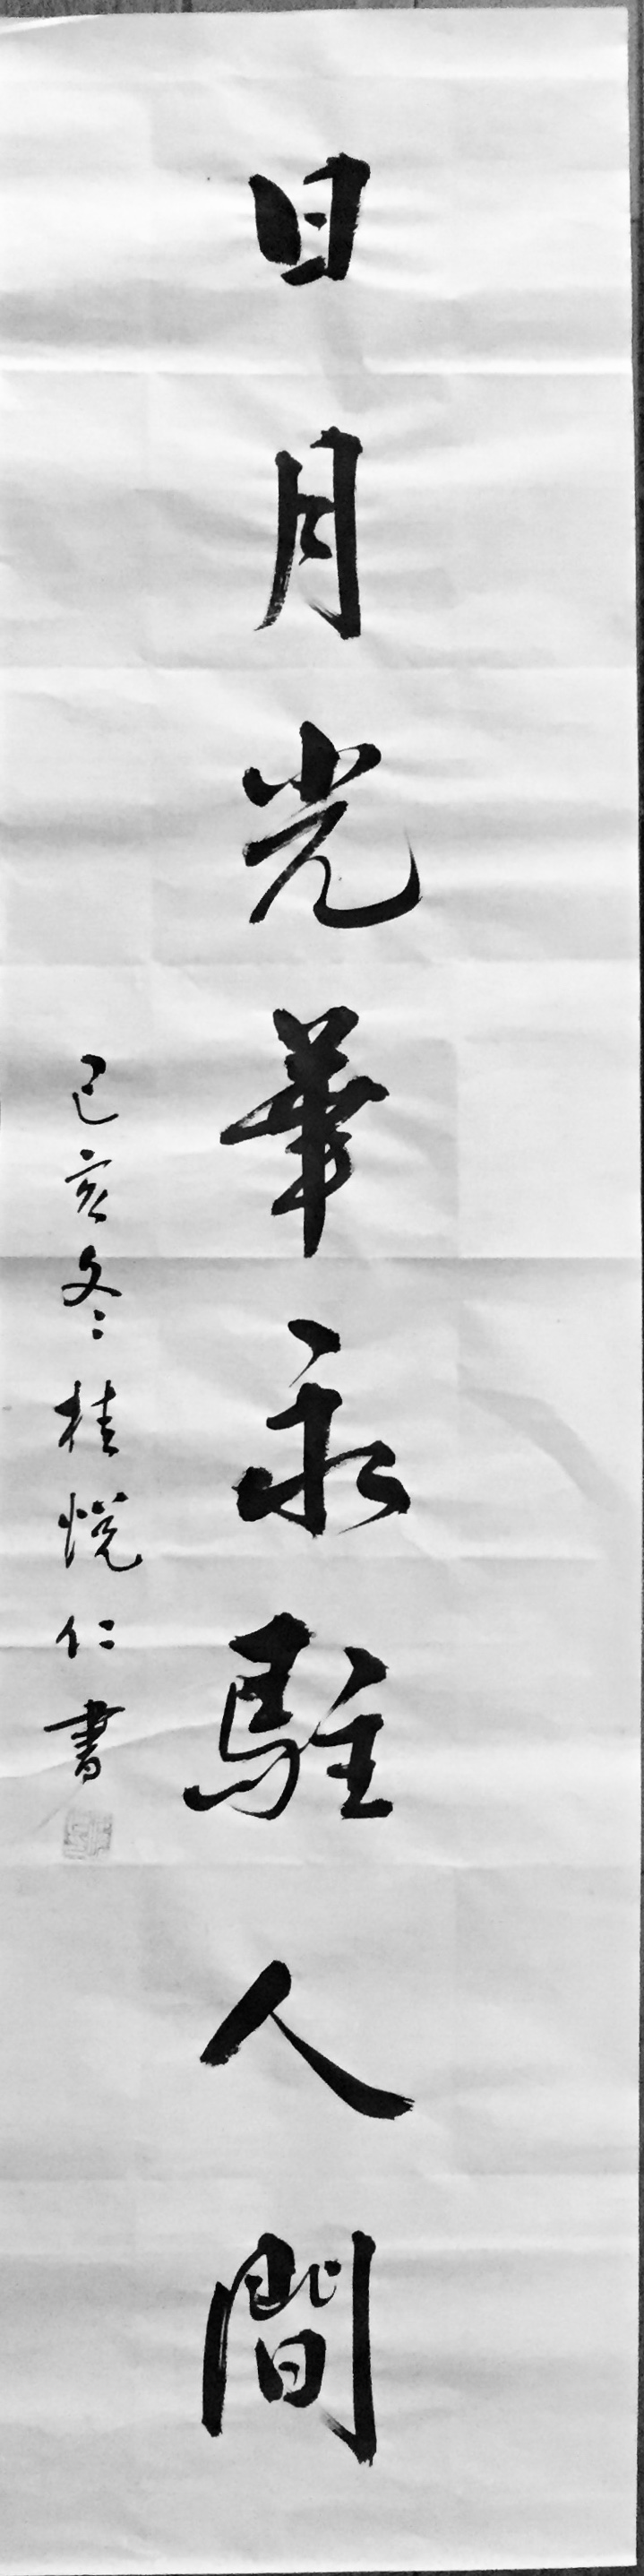 日月光華永駐人間
己亥冬桂悦仁書